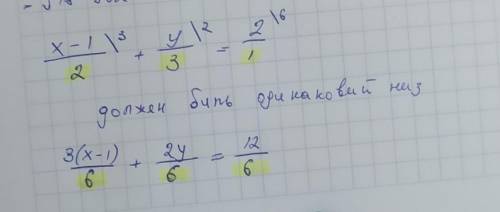 (x-1)/2 \3 + y/3 \2 = 2/1 \6
должен бить одинаковий низ
3(x-1)/6 + 2y/6 = 12/6